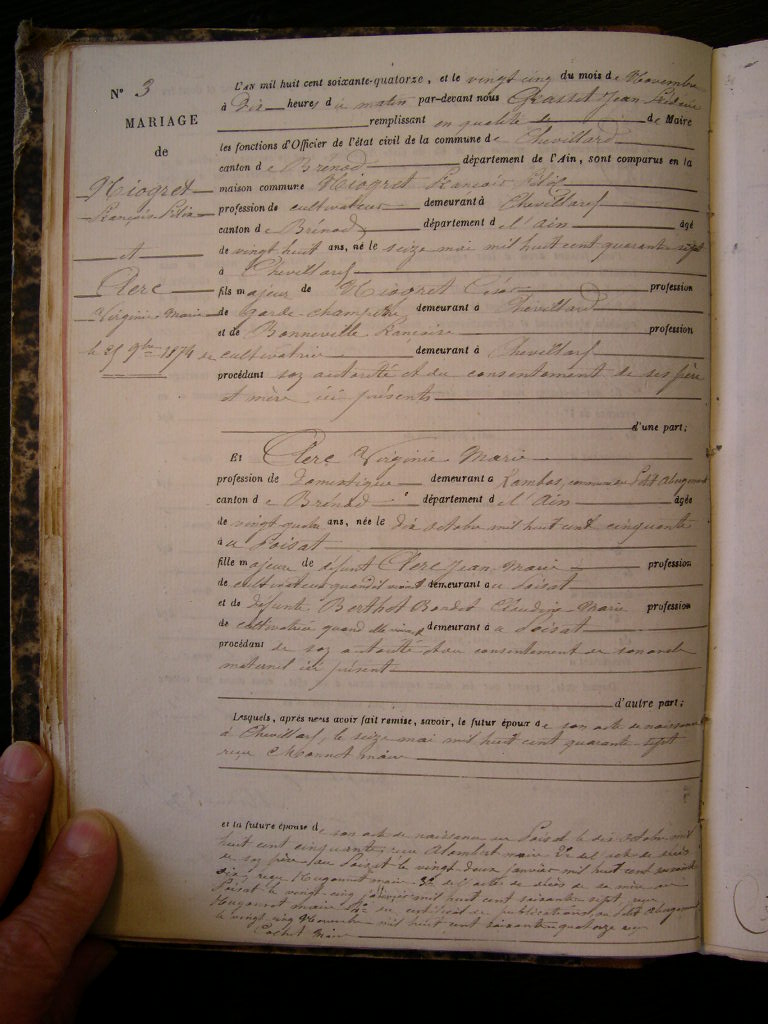 N° 3
MARIAGE
de
Niogret
François Félix
et
Clerc
Virginie Marie
le 25 9bre 1874
L'AN mil huit cent soixante-quatorze, et le vingt cinq du mois de Novembre
à Dix heures du matin par-devant nous Grasset Jean
remplissant en qualité de Maire
les fonctions d'Officier de l'état civil de la commune de Chevillard
canton de Brénod département de l'Ain, sont comparus en la
maison commune Niogret François Félix
profession de cultivateur demeurant à Chevillard
canton de Brénod département de l'Ain âgé
de vingt huit ans, né le seize mai mil huit cent quarante sept
à Chevillard
fils majeur de Niogret César profession
de garde champêtre demeurant à Chevillard
et de Bonneville Françoise profession
de cultivatrice demeurant à Chevillard
procédant de son autorité et du consentement de ses père
et mère ici présents
d'une part;
Et Clerc Virginie Marie
profession de Domestique demeurant à commune du Petit Abergement
canton de Brénod département de l'Ain âgée
de vingt quatre ans, née le dix octobre mil huit cent cinquante
à au Poisat
fille majeur de défunt Clerc Jean Marie profession
de cultivateur quand il vivait demeurant au Poisat
et de défunte Berthet Bondet Claudine Marie profession
de cultivatrice quand elle vivait demeurant à au Poisat
procédant de son autorité et du consentement de son oncle
maternel ici présent
d'autre part;
Lesquels, après nous avoir fait remise, savoir, le futur époux de son acte de naissance
à Chevillard, le seize mai mil huit cent quarante sept
reçu Monnot maire
et la future épouse de son acte de naissance au Poisat le dix octobre mil
huit cent cinquante, reçu Alombert maire 2° de l'acte de décès
de son père au Poizat le vingt deux janvier mil huit cent soixante
dix, reçu Hugonnot maire 3° de l'acte de décès de sa mère au
Poisat le vingt cinq janvier mil huit cent soixante sept, reçu
Hugonnot maire 4° du certificat de publications au Petit Abergement
le vingt cinq Novembre mil huit cent soixante quatorze reçu
Cochet Maire